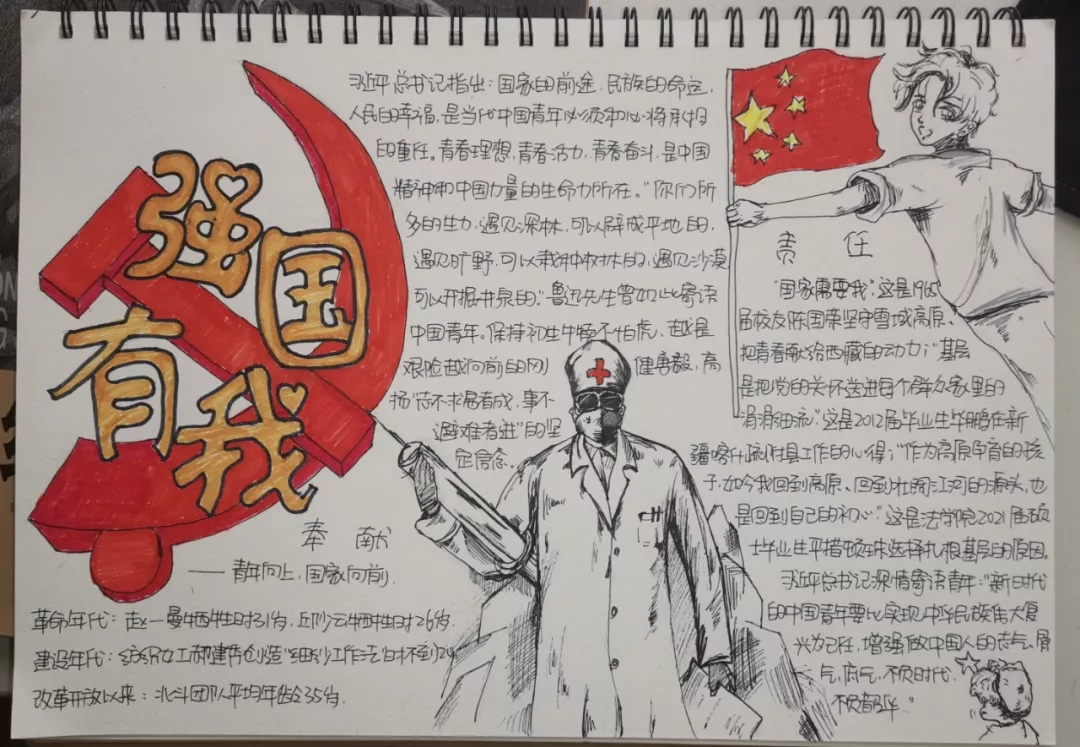 强国
有我
习近平总书记指出：国家的前途，民族的命运，
人民的幸福，是当代中国青年必须和必将承担
的重任。青春理想，青春活力，青春奋斗，是中国
精神和中国力量的生命力所在。"你们所
多的生力，遇见深林，可以辟成平地的，
遇见旷野，可以栽种树林的，遇见沙漠
可以开掘井泉的。"鲁迅先生曾如此寄语
中国青年。保持初生牛犊不怕虎，越是
艰险越向前的刚健勇毅，高
扬"志不求易者成，事不
避难者进"的坚
定信念。
奉献
——青年向上，国家向前．
革命年代：赵一曼牺牲时31岁，邱少云牺牲时26岁．
建设年代：纺织女工郝建秀创造"细纱工作法"时不到
改革开放以来：北斗团队平均年龄35岁．
责任
"国家需要我"，这是1965
届校友陈国荣坚守雪域高原、
把青春献给西藏的动力；"基层
是把党的关怀送进每个群众家里的
涓涓细流"，这是2012届毕业生毕鹏在新
疆喀什疏附县工作的心得；"作为高原孕育的孩
子，如今我回到高原、回到壮阔江河的源头，也
是回到自己的初心"这是法学院2021届硕
士毕业生平措顿珠选择扎根基层的原因。
习近平总书记深情寄语青年："新时代
的中国青年要以实现中华民族伟大复
兴为己任，增强做中国人的志气、骨
气、底气，不负时代，
不负韶华．"